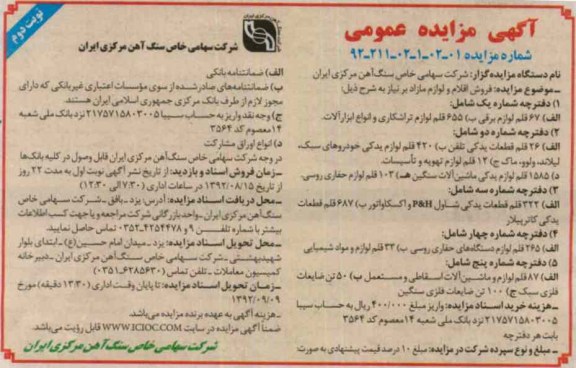 آگهی مزایده عمومی
شماره مزایده ۰۱-۰۲-۱-۰۲-۲۱۱-۹۲
نام دستگاه مزایده گزار: شرکت سهامی خاص سنگ آهن مرکزی ایران
ـ موضوع مزایده: فروش اقلام و لوازم مازاد بر نیاز به شرح ذیل:
۱) دفترچه شماره یک شامل:
الف) ۶۷ قلم لوازم برقی ب) ۶۵۵ قلم لوازم تراشکاری و انواع ابزارآلات.
۲) دفترچه شماره دو شامل:
الف) ۲۶ قلم قطعات یدکی تلفن ب) ۴۲۰ قلم لوازم یدکی خودروهای سبک،
لیلاند، ولوو، ماک ج) ۱۲ قلم لوازم تهویه و تأسیسات.
د) ۱۵۸۵ قلم لوازم یدکی ماشین آلات سنگین هـ) ۱۰۲ قلم لوازم حفاری روسی.
۳) دفترچه شماره سه شامل:
الف) ۳۲۲ قلم قطعات یدکی شاول P&H و اکسکاواتور ب) ۶۸۷ قلم قطعات
یدکی کاترپیلار
۴) دفترچه شماره چهار شامل:
الف) ۲۶۵ قلم لوازم دستگاههای حفاری روسی ب) ۳۳ قلم لوازم و مواد شیمیایی
۵) دفترچه شماره پنج شامل:
الف) ۸۷ قلم لوازم و ماشین آلات اسقاطی و مستعمل ب) ۵۰ تن ضایعات
فلزی سبک ج) ۱۰۰ تن ضایعات فلزی سنگین
ـ هزینه خرید اسناد مزایده: واریز مبلغ ۴۰۰/۰۰۰ ریال به حساب سیبا
۲۱۷۵۷۱۵۸۰۳۰۰۵ نزد بانک ملی شعبه ۱۴ معصوم کد ۳۵۶۴
بابت هر دفترچه
ـ مبلغ و نوع سپرده شرکت در مزایده: مبلغ ۱۰ درصد قیمت پیشنهادی به صورت:
نوبت دوم
شرکت سهامی خاص سنگ آهن مرکزی ایران
الف) ضمانتنامه بانکی
ب) ضمانتنامه‌های صادر شده از سوی مؤسسات اعتباری غیربانکی که دارای
مجوز لازم از طرف بانک مرکزی جمهوری اسلامی ایران هستند.
ج) وجه نقد واریز به حساب سیبا ۲۱۷۵۷۱۵۸۰۳۰۰۵ نزد بانک ملی شعبه
۱۴ معصوم کد ۳۵۶۴
د) انواع اوراق مشارکت
در وجه شرکت سهامی خاص سنگ آهن مرکزی ایران قابل وصول در کلیه بانک‌ها
ـ زمان فروش اسناد و بازدید: از تاریخ نشر آگهی نوبت اول به مدت ۲۲ روز
از تاریخ ۱۳۹۲/۰۸/۱۵ در ساعات اداری (۷:۳۰ الی ۱۲:۳۰)
ـ محل دریافت اسناد مزایده: آدرس: یزد ـ بافق ـ شرکت سهامی خاص
سنگ آهن مرکزی ایران ـ واحد بازرگانی شرکت مراجعه و یا جهت کسب اطلاعات
بیشتر با شماره تلفن ۹ و ۴۲۵۴۴۷۸-۰۳۵۲ تماس حاصل نمایید.
ـ محل تحویل اسناد مزایده: یزد ـ میدان امام حسین(ع) ـ ابتدای بلوار
شهید بهشتی ـ شرکت سهامی خاص سنگ آهن مرکزی ایران ـ دبیرخانه
کمیسیون معاملات ـ تلفن تماس (۶۲۸۵۶۳۰-۰۳۵۱)
ـ زمان تحویل اسناد مزایده: تا پایان وقت اداری (۱۳:۳۰ دقیقه) مورخ
۱۳۹۲/۰۹/۰۹
ـ هزینه آگهی به عهده برنده مزایده می‌باشد.
ضمناً آگهی مزایده در سایت WWW.ICIOC.COM قابل رؤیت می‌باشد.
شرکت سهامی خاص سنگ آهن مرکزی ایران